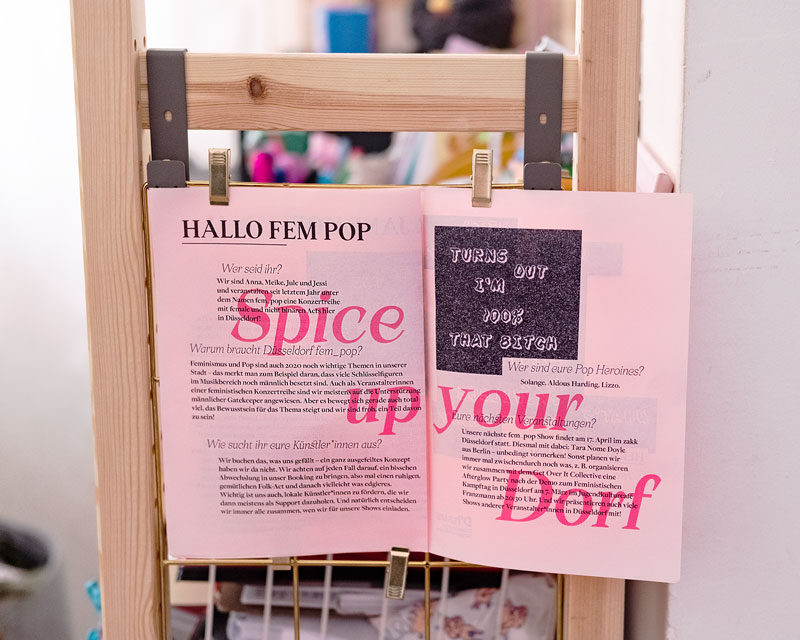 HALLO FEM POP
Wer seid ihr?
Wir sind Anna, Meike, Jule und Jessi
und veranstalten seit letztem Jahr unter
dem Namen fem_pop eine Konzertreihe
mit female und nicht binären Acts hier
in Düsseldorf!
Spice
Warum braucht Düsseldorf fem_pop?
Feminismus und Pop sind auch 2020 noch wichtige Themen in unserer
Stadt – das merkt man zum Beispiel daran, dass viele Schlüsselfiguren
im Musikbereich noch männlich besetzt sind. Auch als Veranstalterinnen
einer feministischen Konzertreihe sind wir meistens auf die Unterstützung
männlicher Gatekeeper angewiesen. Aber es bewegt sich gerade auch total
viel, das Bewusstsein für das Thema steigt und wir sind froh, ein Teil davon
zu sein!
up
Wie sucht ihr eure Künstler*innen aus?
Wir buchen das, was uns gefällt – ein ganz ausgefeiltes Konzept
haben wir da nicht. Wir achten auf jeden Fall darauf, ein bisschen
Abwechslung in unser Booking zu bringen, also mal einen ruhigen,
gemütlichen Folk-Act und danach vielleicht was edgieres.
Wichtig ist uns auch, lokale Künstler*innen zu fördern, die wir
dann meistens als Support dazuholen. Und natürlich entscheiden
wir immer alle zusammen, wen wir für unsere Shows einladen.
TURNS
OUT
I'M
100%
THAT BITCH
Wer sind eure Pop Heroines?
Solange, Aldous Harding, Lizzo.
your
Eure nächsten Veranstaltungen?
Unsere nächste fem_pop Show findet am 17. April im zakk
Düsseldorf statt. Diesmal mit dabei: Tara Nome Doyle
aus Berlin – unbedingt vormerken! Sonst planen wir
immer mal zwischendurch noch was, z. B. organisieren
wir zusammen mit dem Get Over It Collective eine
Afterglow Party nach der Demo zum Feministischen
Kampftag in Düsseldorf am 7. März im Jugendkulturcafé
Franzmann ab 20:30 Uhr. Und wir präsentieren auch viele
Shows anderer Veranstalter*innen in Düsseldorf mit!
Dorf